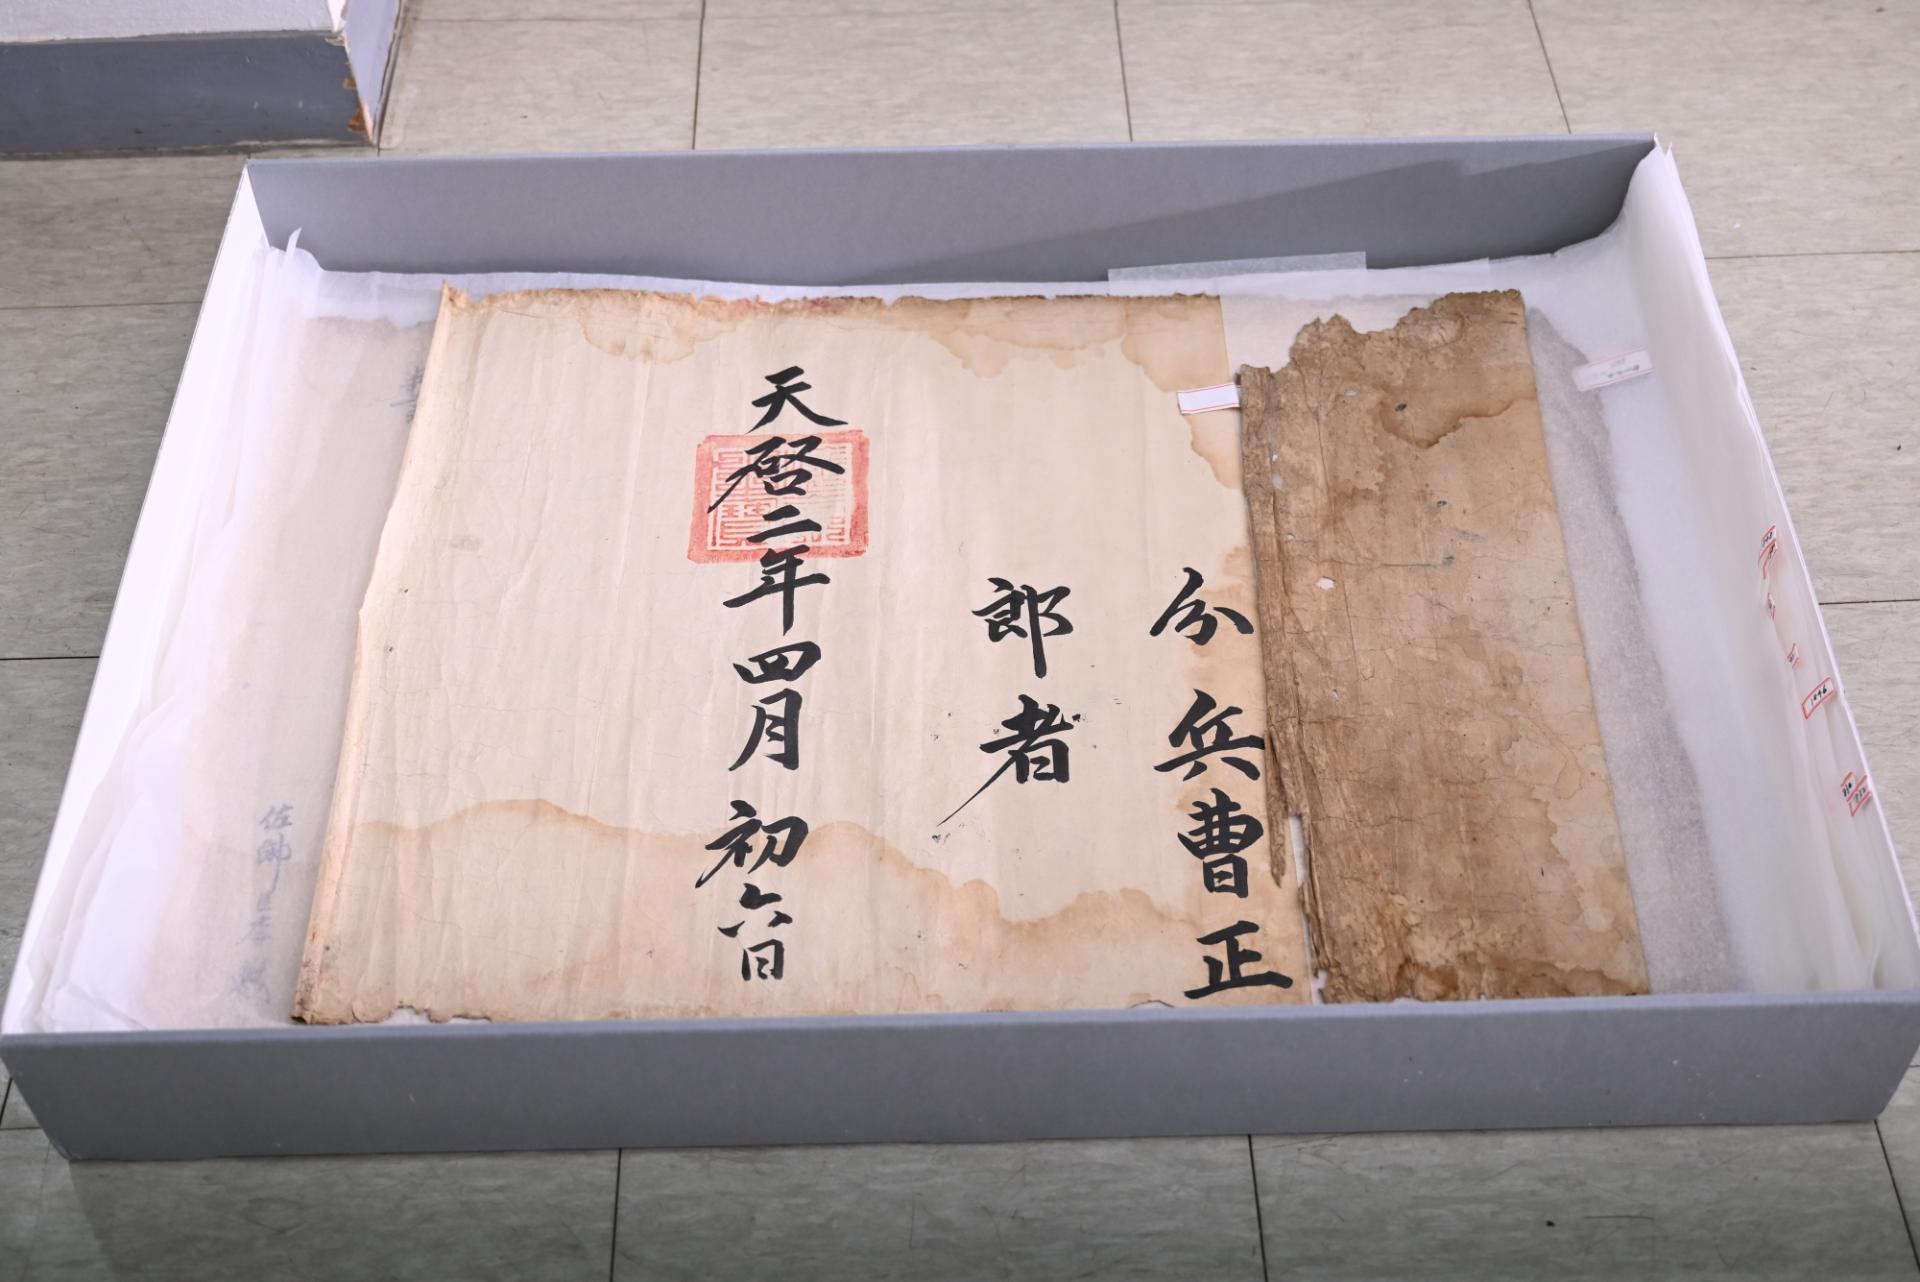 分兵曹正
郎者
天啓二年四月初六日
1096